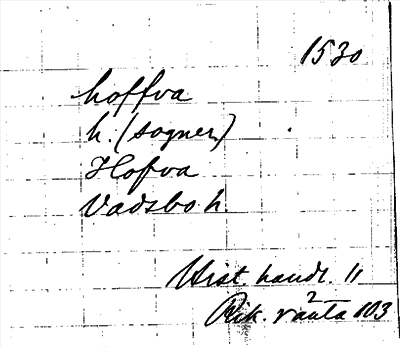 1530
hoffva
h. (sogner)
Hofva
Vadsbo h.
Hist. handl. 11
Rik. ränta 103
2